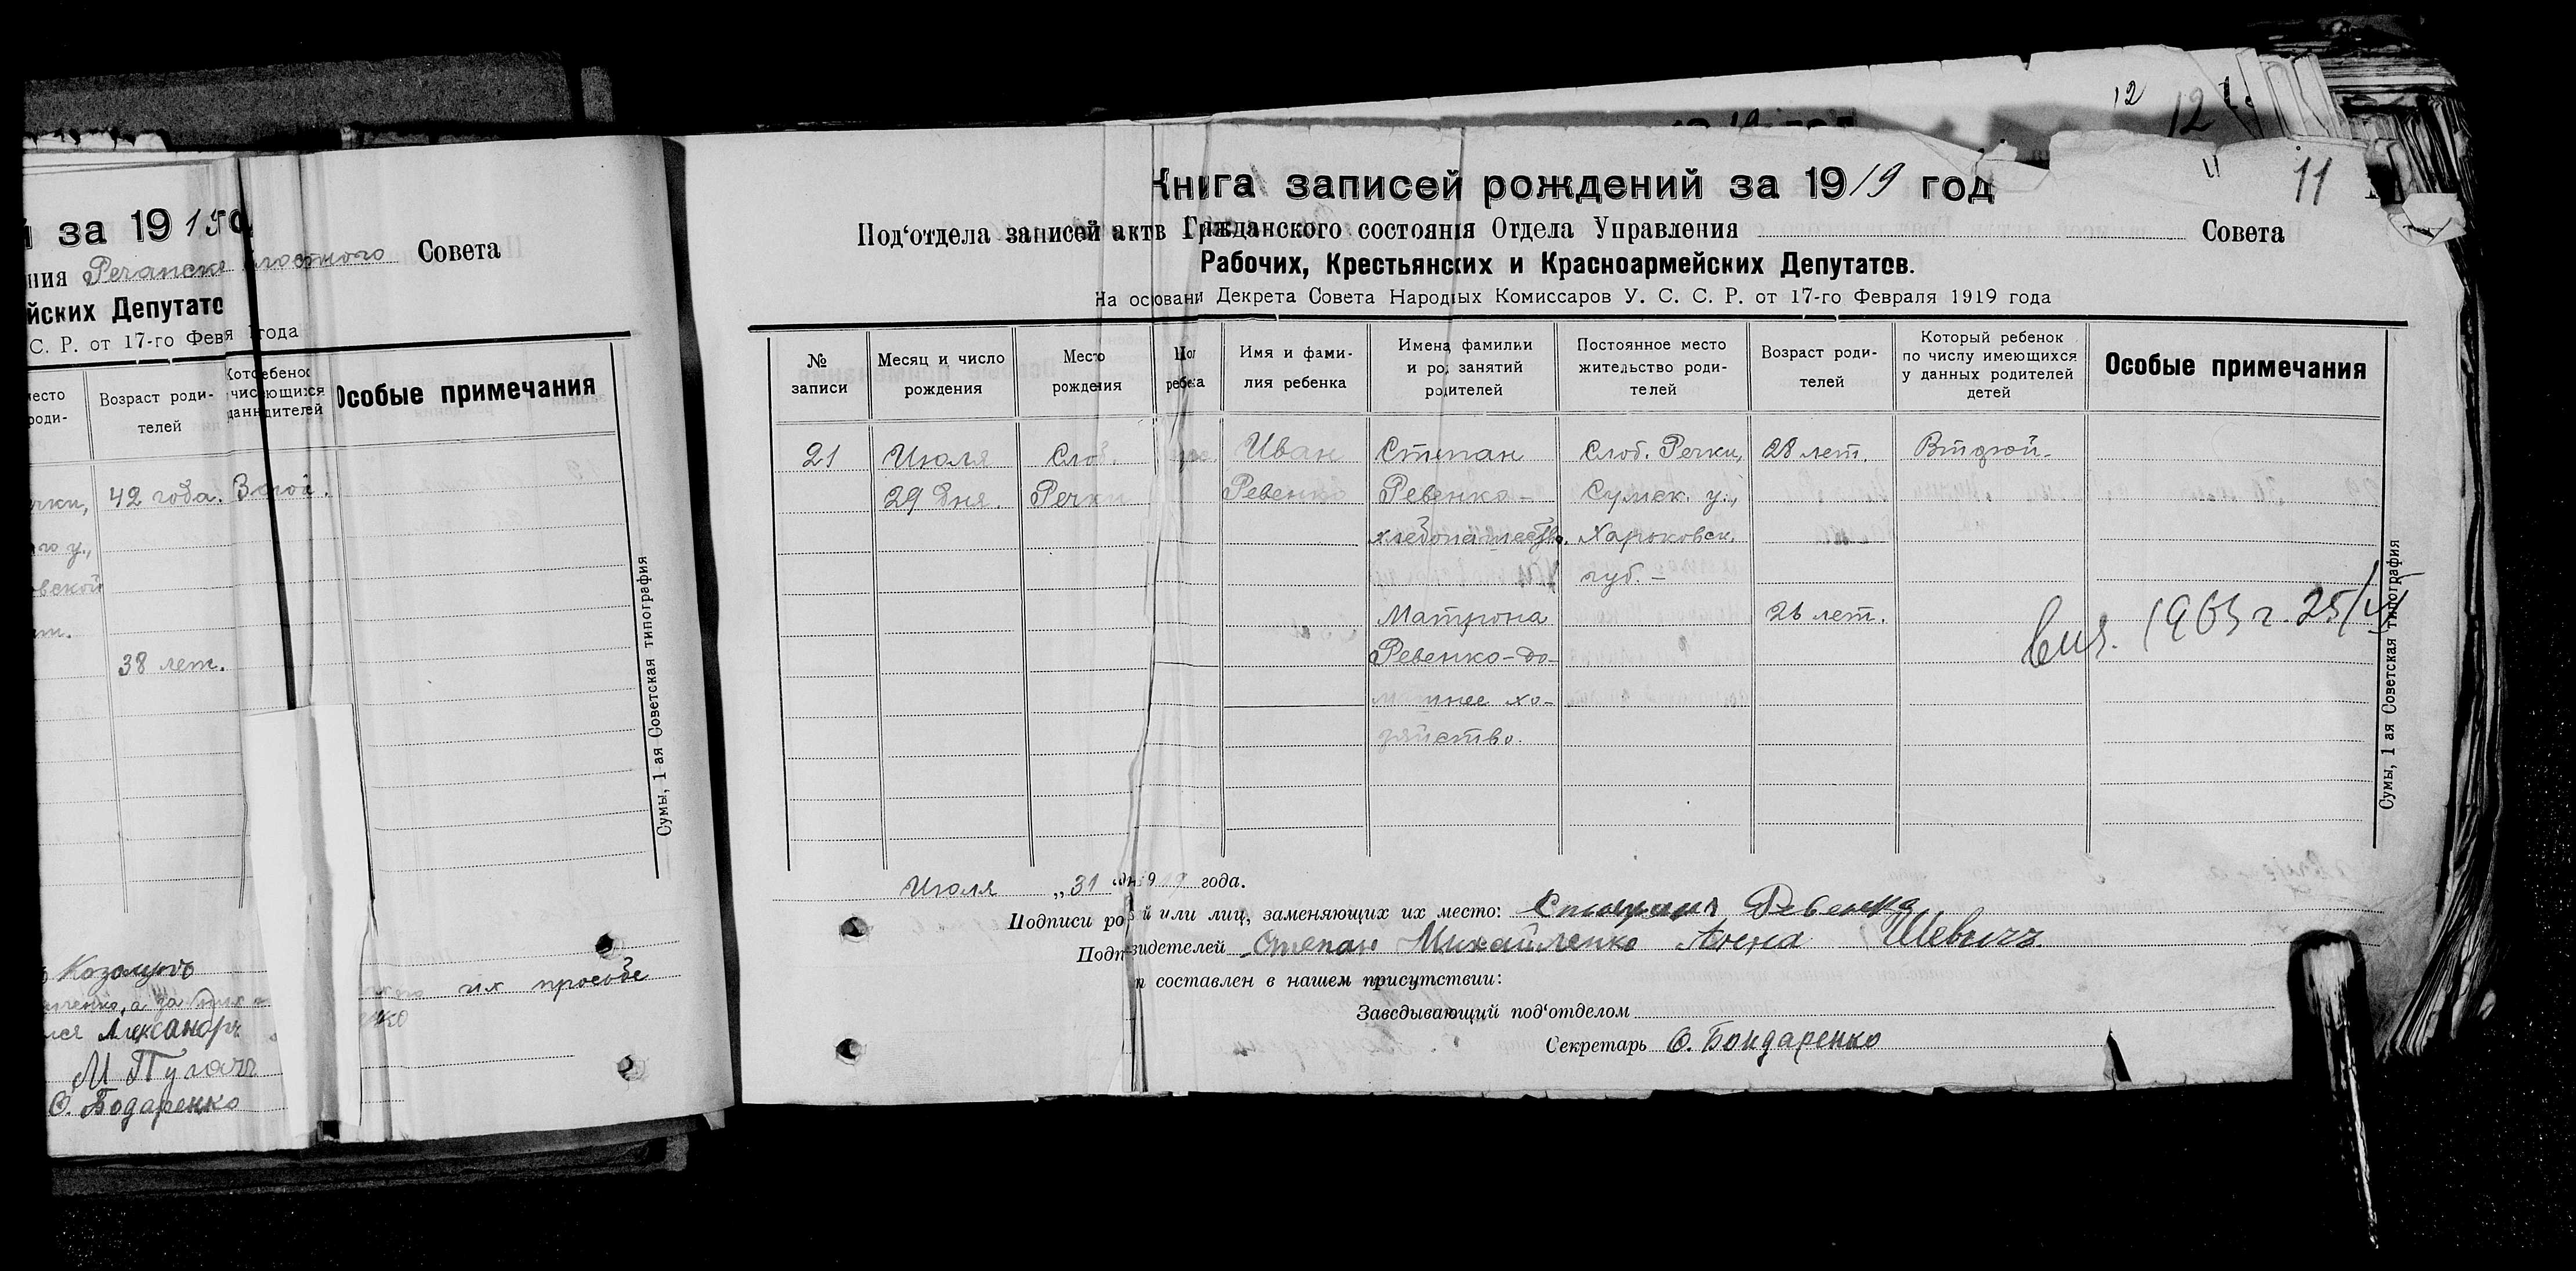 за 19 19
ния Речанск Совета
йских Депутато
С. Р. от 17-го Фев года
место роди-
Возраст роди-
телей
Особые примечания
чки, 42 года.
го у.,
38 лет.
Сумы, 1-ая Советская типография
их просьбе
Александр
М Пугач
О. Бодаренко
12 12
11 11
Книга записей рождений за 1919 год
Под‘отдела записей актв Гражданского состояния Отдела Управления Совета
Рабочих, Крестьянских и Красноармейских Депутатов.
На основани Декрета Совета Народных Комиссаров У. С. С. Р. от 17-го Февраля 1919 года
№ записи
Месяц и число рождения
Место рождения
Пол ребека
Имя и фами-
лия ребенка
Имена фамилии
и род занятий
родителей
Постоянное место
жительство роди-
телей
Возраст роди-
телей
Который ребенок
по числу имеющихся
у данных родителей
детей
Особые примечания
21 Июля Слоб. Иван Степан Слоб. Речки, 28 лет. Второй-
29 дня. Речки Ревенко Ревенко- Сумск. у.,
хлебопашество. Харьковск.
губ. -
Матрона 26 лет.
Ревенко-до-
машнее хо-
зяйство.
1963 г. 25/
Сумы, 1 ая Советская типография
Июля „31 1919 года.
Подписи ро й или лиц, заменяющих их место: Ревенко
Подп видетелей Степан Михайленко Анна Шевичъ
составлен в нашем присутствии:
Заведывающий под‘отделом
Секретарь О. Бондаренко